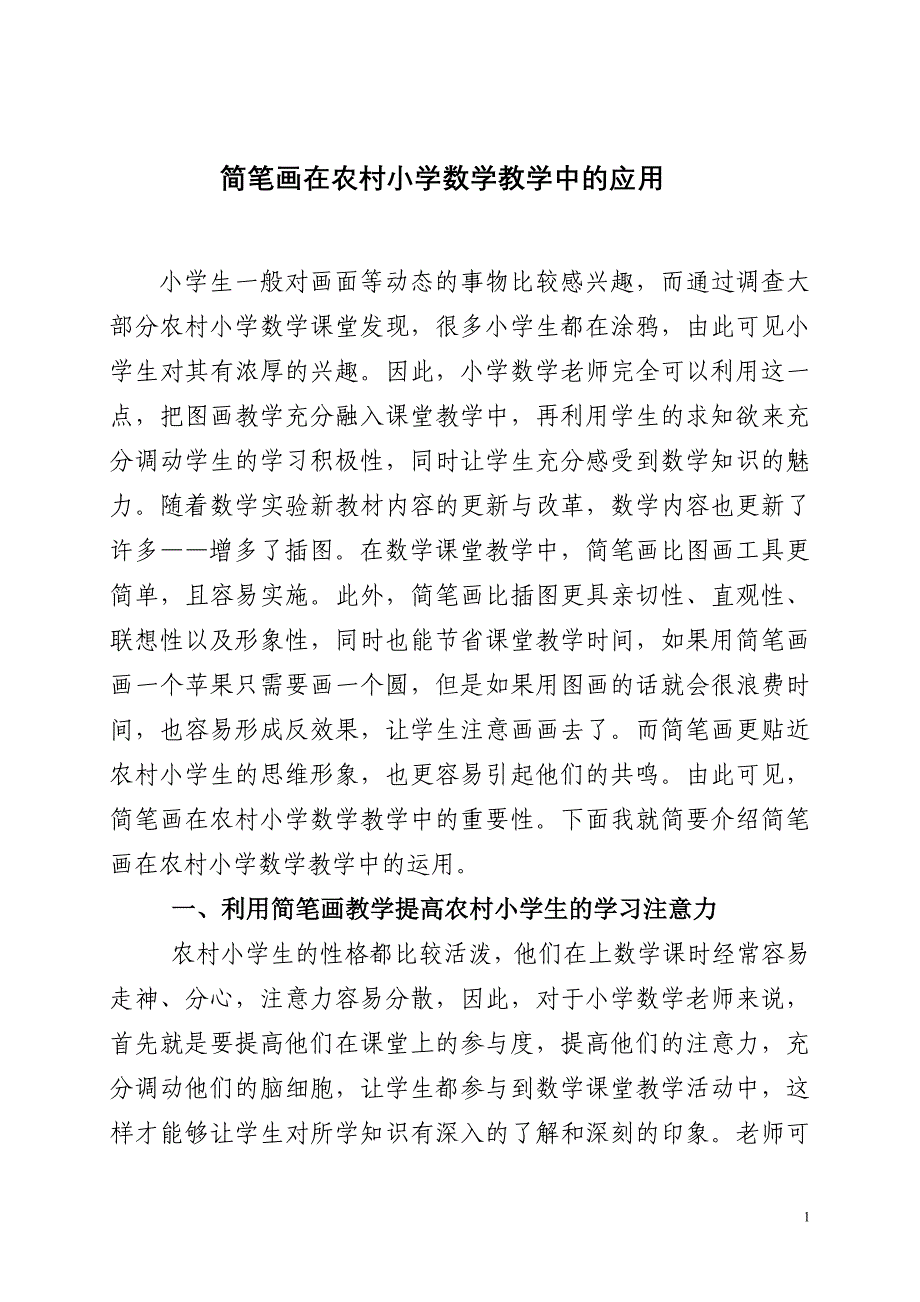 简笔画在农村小学数学教学中的应用
小学生一般对画面等动态的事物比较感兴趣，而通过调查大
部分农村小学数学课堂发现，很多小学生都在涂鸦，由此可见小
学生对其有浓厚的兴趣。因此，小学数学老师完全可以利用这一
点，把图画教学充分融入课堂教学中，再利用学生的求知欲来充
分调动学生的学习积极性，同时让学生充分感受到数学知识的魅
力。随着数学实验新教材内容的更新与改革，数学内容也更新了
许多——增多了插图。在数学课堂教学中，简笔画比图画工具更
简单，且容易实施。此外，简笔画比插图更具亲切性、直观性、
联想性以及形象性，同时也能节省课堂教学时间，如果用简笔画
画一个苹果只需要画一个圆，但是如果用图画的话就会很浪费时
间，也容易形成反效果，让学生注意画画去了。而简笔画更贴近
农村小学生的思维形象，也更容易引起他们的共鸣。由此可见，
简笔画在农村小学数学教学中的重要性。下面我就简要介绍简笔
画在农村小学数学教学中的运用。
一、利用简笔画教学提高农村小学生的学习注意力
农村小学生的性格都比较活泼，他们在上数学课时经常容易
走神、分心，注意力容易分散，因此，对于小学数学老师来说，
首先就是要提高他们在课堂上的参与度，提高他们的注意力，充
分调动他们的脑细胞，让学生都参与到数学课堂教学活动中，这
样才能够让学生对所学知识有深入的了解和深刻的印象。老师可
1